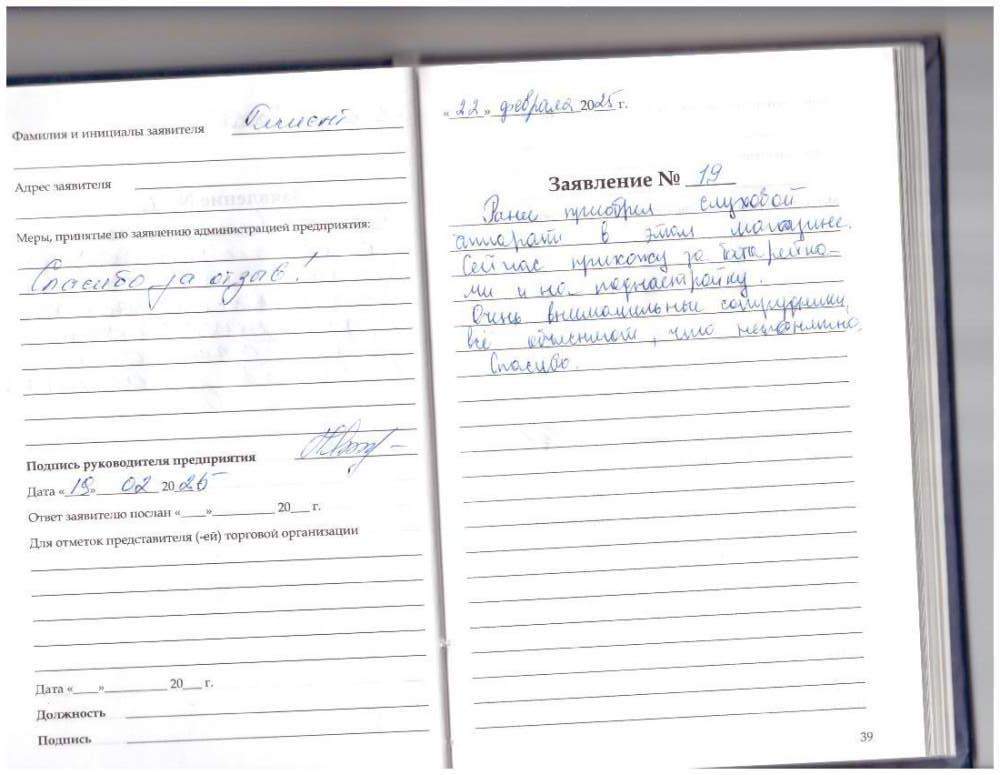 Фамилия и инициалы заявителя
Адрес заявителя
Меры, принятые по заявлению администрацией предприятия:
Спасибо за отзыв!
Подпись руководителя предприятия
Дата «19» 02 2025
Ответ заявителю послан «___»__________ 20___ г.
Для отметок представителя (-ей) торговой организации
Дата «____»__________ 20___ г.
Должность
Подпись
«22» февраля 2025 г.
Заявление № 19
Ранее приобрел слуховой
аппарат в этом магазине.
Сейчас прихожу за батарейка-
ми и на поднастройку.
Очень внимательные сотрудники,
всё объясняют, что непонятно.
Спасибо.
39